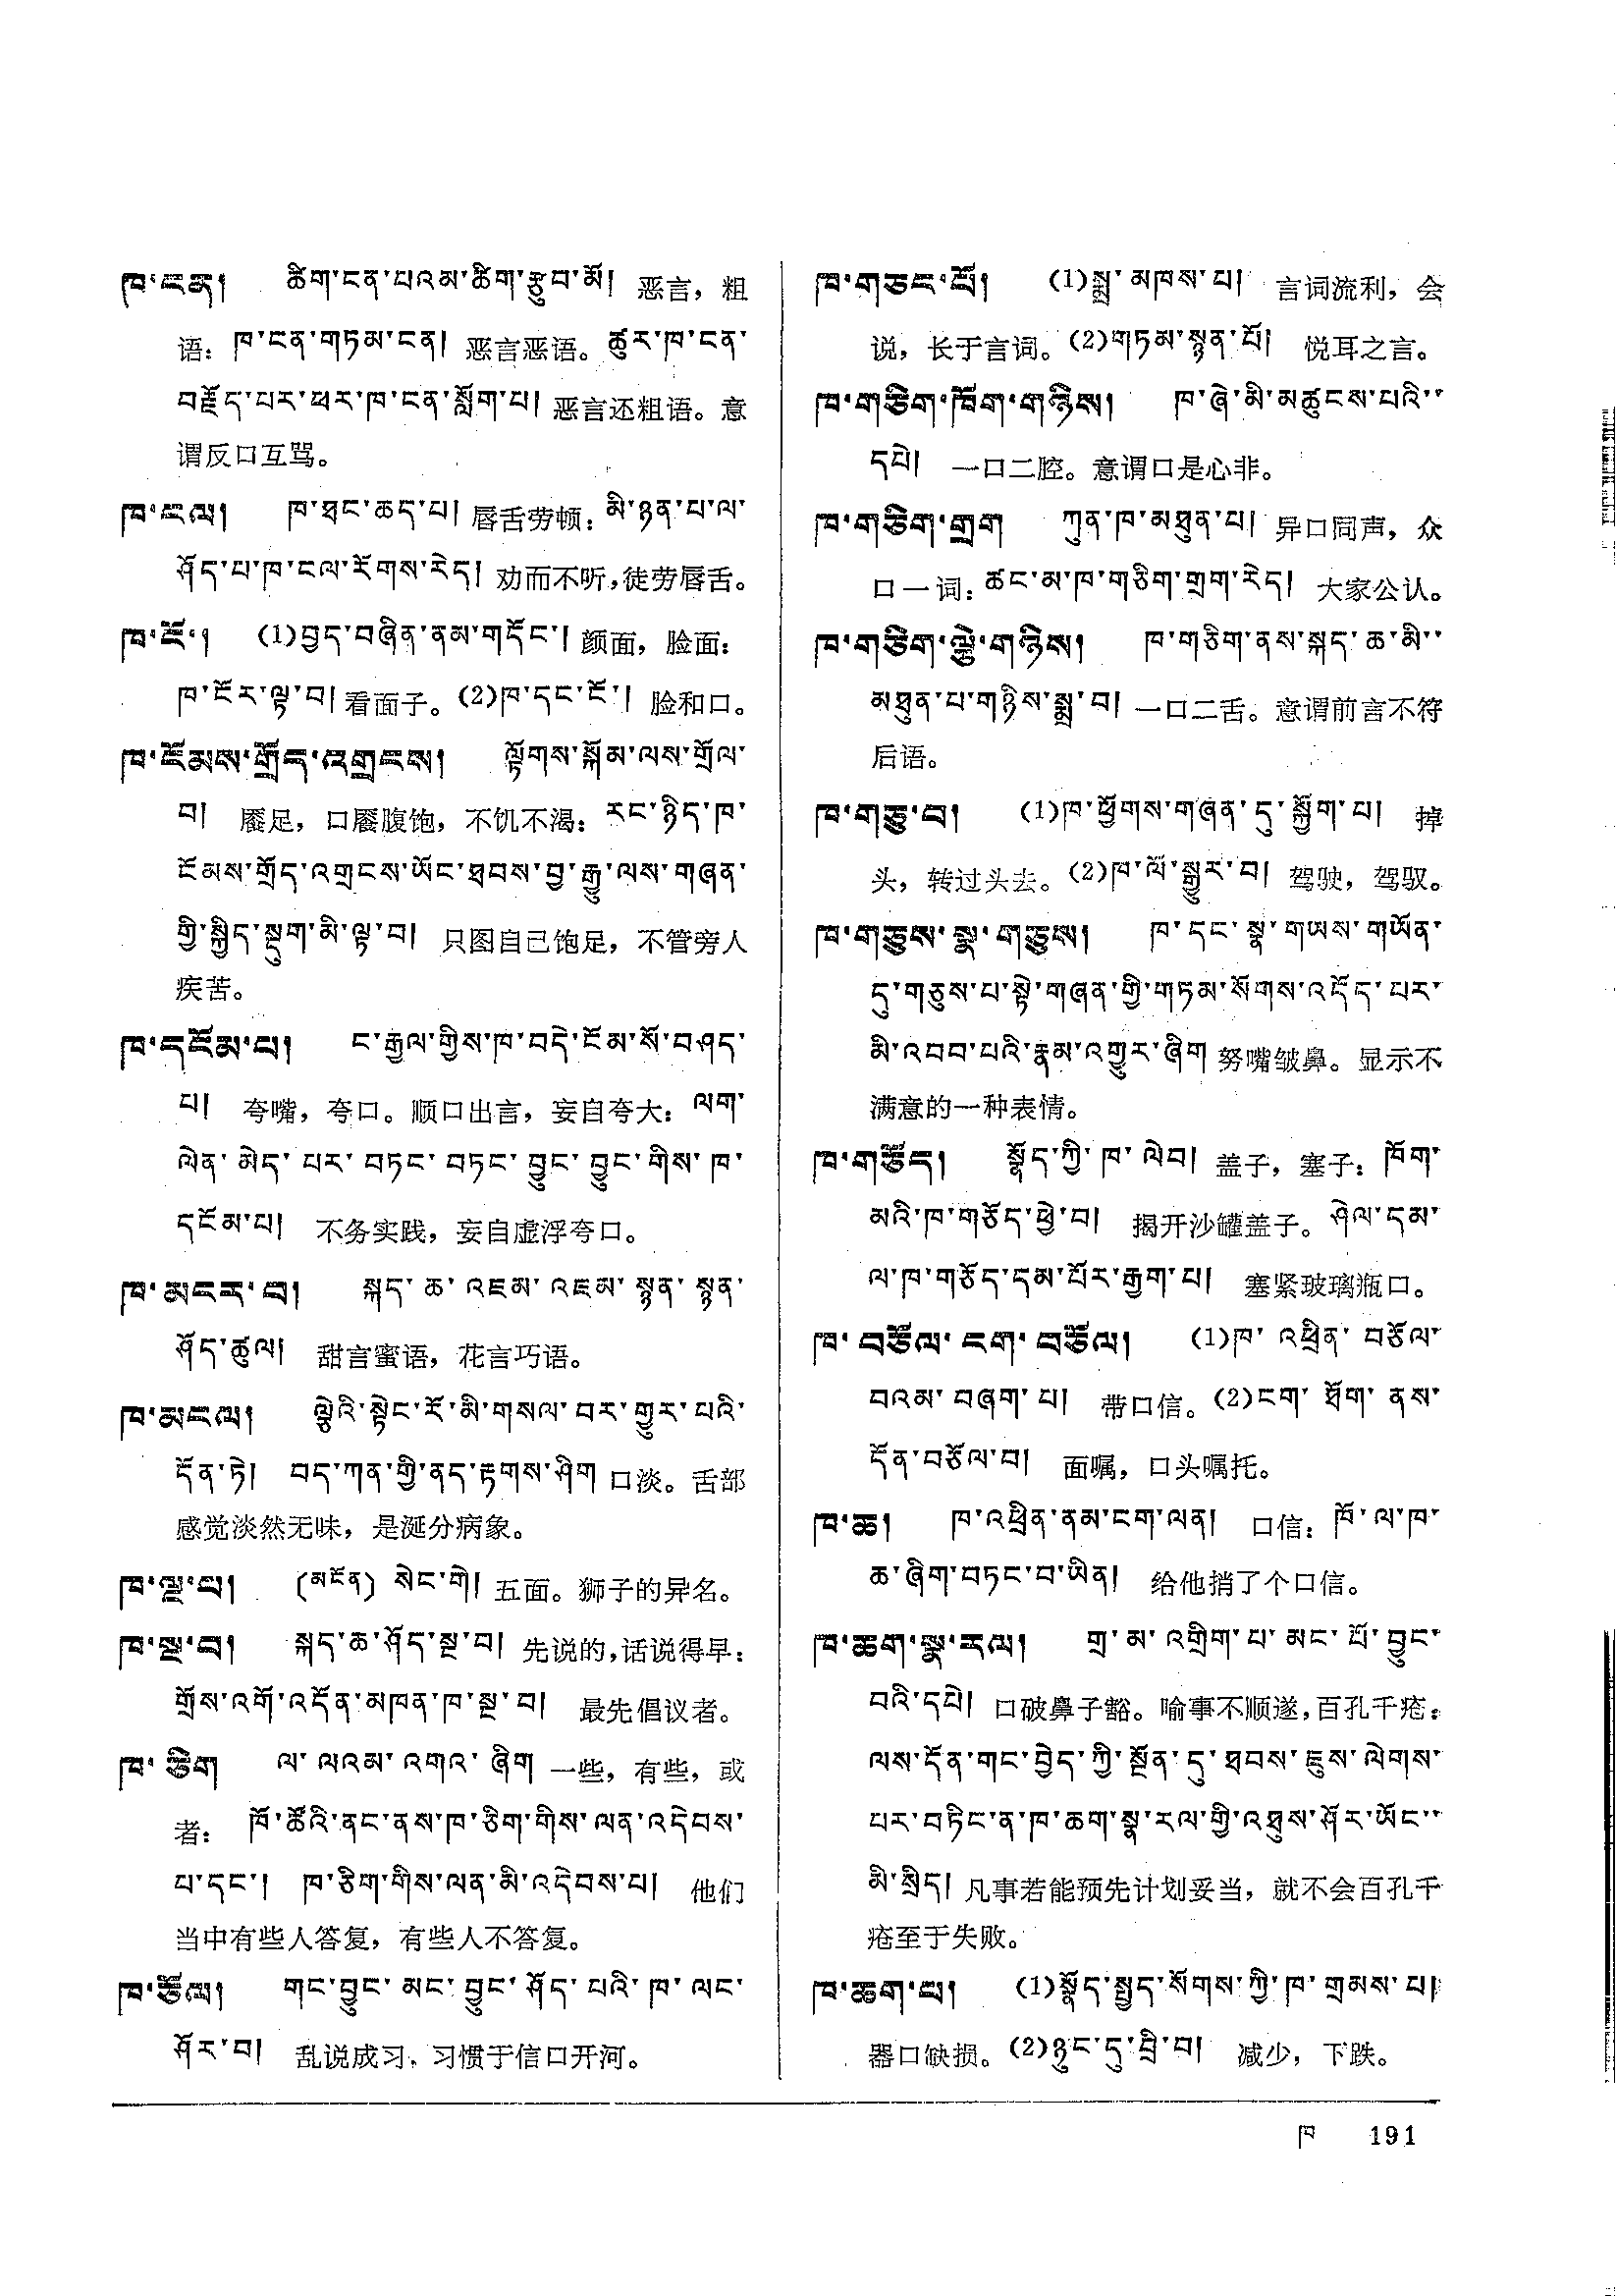 ཁ་ངན། ཚིག་ངན་པའམ་ཚིག་རྩུབ་མོ། 恶言，粗
语：ཁ་ངན་གཏམ་ངན། 恶言恶语。ཚུར་ཁ་ངན་
བརྗོད་པར་ཕར་ཁ་ངན་སློག་པ། 恶言还粗语。意
谓反口互骂。
ཁ་ངལ། ཁ་ཐང་ཆད་པ། 唇舌劳顿：མི་ཉན་པ་ལ་
ཤོད་པ་ཁ་ངལ་རོགས་རེད། 劝而不听，徒劳唇舌。
ཁ་ངོ་། (1)བྱད་བཞིན་ནམ་གདོང་། 颜面，脸面：
ཁ་ངོར་ལྟ་བ། 看面子。(2)ཁ་དང་ངོ་། 脸和口。
ཁ་ངོམས་གྲོད་འགྲངས། ལྟོགས་སྐོམ་ལས་གྲོལ་
བ། 餍足，口餍腹饱，不饥不渴：རང་ཉིད་ཁ་
ངོམས་གྲོད་འགྲངས་ཡོང་ཐབས་བྱ་རྒྱུ་ལས་གཞན་
གྱི་སྐྱིད་སྡུག་མི་ལྟ་བ། 只图自己饱足，不管旁人
疾苦。
ཁ་དངོམ་པ། ང་རྒྱལ་གྱིས་ཁ་བདེ་ངོམ་སོ་བཤད་
པ། 夸嘴，夸口。顺口出言，妄自夸大：ལག་
ལེན་མེད་པར་བཏང་བཏང་བྱུང་བྱུང་གིས་ཁ་
དངོམ་པ། 不务实践，妄自虚浮夸口。
ཁ་མངར་བ། སྐད་ཆ་འཇམ་འཇམ་སྙན་སྙན་
ཤོད་ཚུལ། 甜言蜜语，花言巧语。
ཁ་མངལ། ལྕེའི་སྟེང་རོ་མི་གསལ་བར་གྱུར་པའི་
དོན་ཏེ། བད་ཀན་གྱི་ནད་རྟགས་ཤིག 口淡。舌部
感觉淡然无味，是涎分病象。
ཁ་ལྔ་པ། (མངོན) སེང་གེ། 五面。狮子的异名。
ཁ་སྔ་བ། སྐད་ཆ་ཤོད་སྔ་བ། 先说的，话说得早：
གྲོས་འགོ་འདོན་མཁན་ཁ་སྔ་བ། 最先倡议者。
ཁ་ཅིག ལ་ལའམ་འགའ་ཞིག 一些，有些，或
者：ཁོ་ཚོའི་ནང་ནས་ཁ་ཅིག་གིས་ལན་འདེབས་
པ་དང་། ཁ་ཅིག་གིས་ལན་མི་འདེབས་པ། 他们
当中有些人答复，有些人不答复。
ཁ་ཅོལ། གང་བྱུང་མང་བྱུང་ཤོད་པའི་ཁ་ལང་
ཤོར་བ། 乱说成习，习惯于信口开河。
ཁ་གཅང་པོ། (1)སྨྲ་མཁས་པ། 言词流利，会
说，长于言词。(2)གཏམ་སྙན་པོ། 悦耳之言。
ཁ་གཅིག་ཁོག་གཉིས། ཁ་ཞེ་མི་མཚུངས་པའི་་
དཔེ། 一口二腔。意谓口是心非。
ཁ་གཅིག་གྲག ཀུན་ཁ་མཐུན་པ། 异口同声，众
口一词：ཚང་མ་ཁ་གཅིག་གྲག་རེད། 大家公认。
ཁ་གཅིག་ལྕེ་གཉིས། ཁ་གཅིག་ནས་སྐད་ཆ་མི་་
མཐུན་པ་གཉིས་སྨྲ་བ། 一口二舌。意谓前言不符
后语。
ཁ་གཅུ་བ། (1)ཁ་ཕྱོགས་གཞན་དུ་སྐྱོག་པ། 掉
头，转过头去。(2)ཁ་ལོ་སྒྱུར་བ། 驾驶，驾驭。
ཁ་གཅུས་སྣ་གཅུས། ཁ་དང་སྣ་གཡས་གཡོན་
དུ་གཅུས་པ་སྟེ་གཞན་གྱི་གཏམ་སོགས་འདོད་པར་
མི་འབབ་པའི་རྣམ་འགྱུར་ཞིག 努嘴皱鼻。显示不
满意的一种表情。
ཁ་གཅོད། སྣོད་ཀྱི་ཁ་ལེབ། 盖子，塞子：ཁོག་
མའི་ཁ་གཅོད་ཕྱེ་བ། 揭开沙罐盖子。ཤེལ་དམ་
ལ་ཁ་གཅོད་དམ་པོར་རྒྱག་པ། 塞紧玻璃瓶口。
ཁ་བཅོལ་ངག་བཅོལ། (1)ཁ་འཕྲིན་བཅོལ་
བའམ་བཞག་པ། 带口信。(2)ངག་ཐོག་ནས་
དོན་བཅོལ་བ། 面嘱，口头嘱托。
ཁ་ཆ། ཁ་འཕྲིན་ནམ་ངག་ལན། 口信：ཁོ་ལ་ཁ་
ཆ་ཞིག་བཏང་བ་ཡིན། 给他捎了个口信。
ཁ་ཆག་སྣ་རལ། གྲ་མ་འགྲིག་པ་མང་པོ་བྱུང་
བའི་དཔེ། 口破鼻子豁。喻事不顺遂，百孔千疮：
ལས་དོན་གང་བྱེད་ཀྱི་སྔོན་དུ་ཐབས་ཇུས་ལེགས་
པར་བཏིང་ན་ཁ་ཆག་སྣ་རལ་གྱི་འཐུས་ཤོར་ཡོང་་
མི་སྲིད། 凡事若能预先计划妥当，就不会百孔千
疮至于失败。
ཁ་ཆག་པ། (1)སྣོད་སྤྱད་སོགས་ཀྱི་ཁ་གྲམས་པ།
器口缺损。(2)ཉུང་དུ་བྲི་བ། 减少，下跌。
ཁ 191